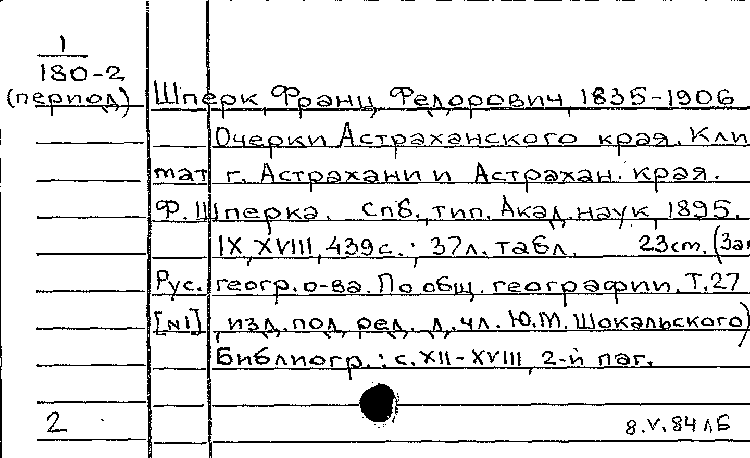 1
180-2
(период) Шперк, Франц Федорович, 1835-1906
Очерки Астраханского края. Кли
мат г. Астрахани и Астрахан. края.
Ф. Шперка. Спб., тип. Акад. наук, 1895.
IX, XVIII, 439 с.; 37 л. табл. 23 см. (Зап
Рус. геогр. о-ва. По общ. географии. Т. 27
[№1], изд. под ред. д. чл. Ю.М. Шокальского)
Библиогр.: с. XII-XVIII, 2-й паг.
2 8.V.84 ЛБ